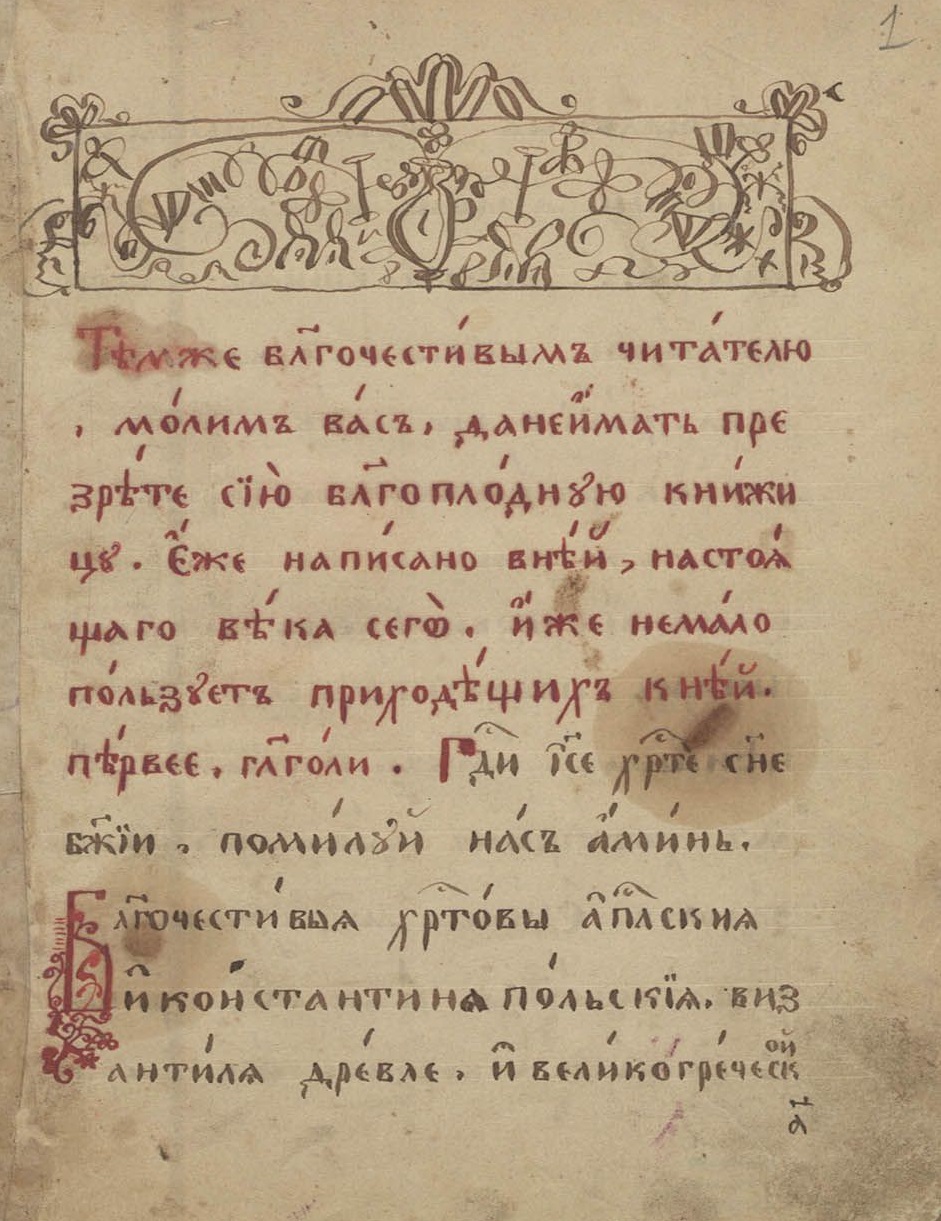 1
Тѣмже бл҃гочести́вымъ чита́телю
, мо́лимъ ва́съ, данеи҆́мать пре
зрѣ́те сїю̀ бл҃гоплѻ́дную кни́жи
цу. Е҆́же напи́сано внѣ́й, настоѧ́
щаго вѣ́ка сегѡ̀. и҆́же нема́ло
по́льзуетъ приходѣ́щихъ кнѣ́й.
пѣ́рвее, гл҃го́ли. Гд҇и і҆с҃е хр҇те сн҃е
бж҃їи, поми́луй на́съ а҆ми́нь.
Бл҃гочести́выѧ хр҇то́вы а҆п҇лскиѧ
и҆ константинѧпо́льскїѧ. виз
анти́лѧ дре́вле, и҆ вели́когре́ческ
ой
а҃